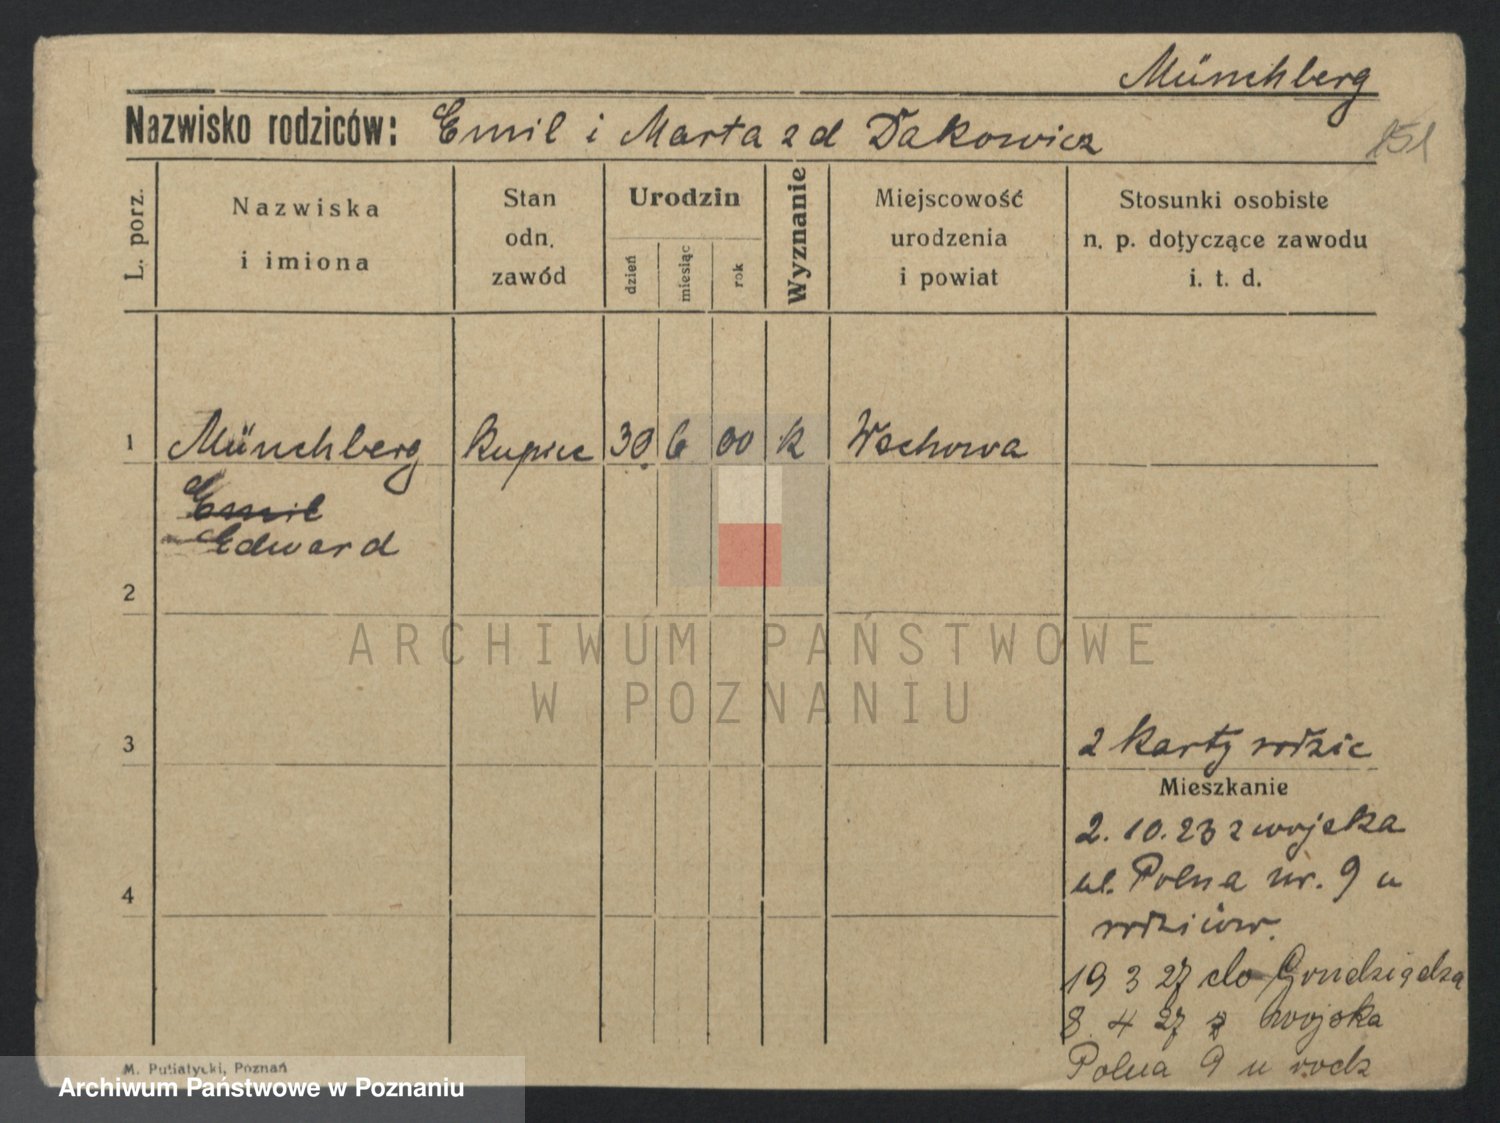 Münchberg
Nazwisko rodziców: Emil i Marta z d Dakowicz
L. porz.
Nazwiska
i imiona
Stan
odn.
zawód
Urodzin
dzień
miesiąc
rok
Wyznanie
Miejscowość
urodzenia
i powiat
Stosunki osobiste
n. p. dotyczące zawodu
i. t. d.
1 Münchberg kupiec 30 6 00 k Wschowa
Emil
Edward
2
ARCHIWUM PAŃSTWOWE
W POZNANIU
3
2 karty rodzic
Mieszkanie
2. 10. 23 z wojska
ul. Polna nr. 9 u
rodziców.
4
19 3 27 do Grudziądza
8 4 27 z wojska
Polna 9 u rodz
M. Putiatycki, Poznań
Archiwum Państwowe w Poznaniu